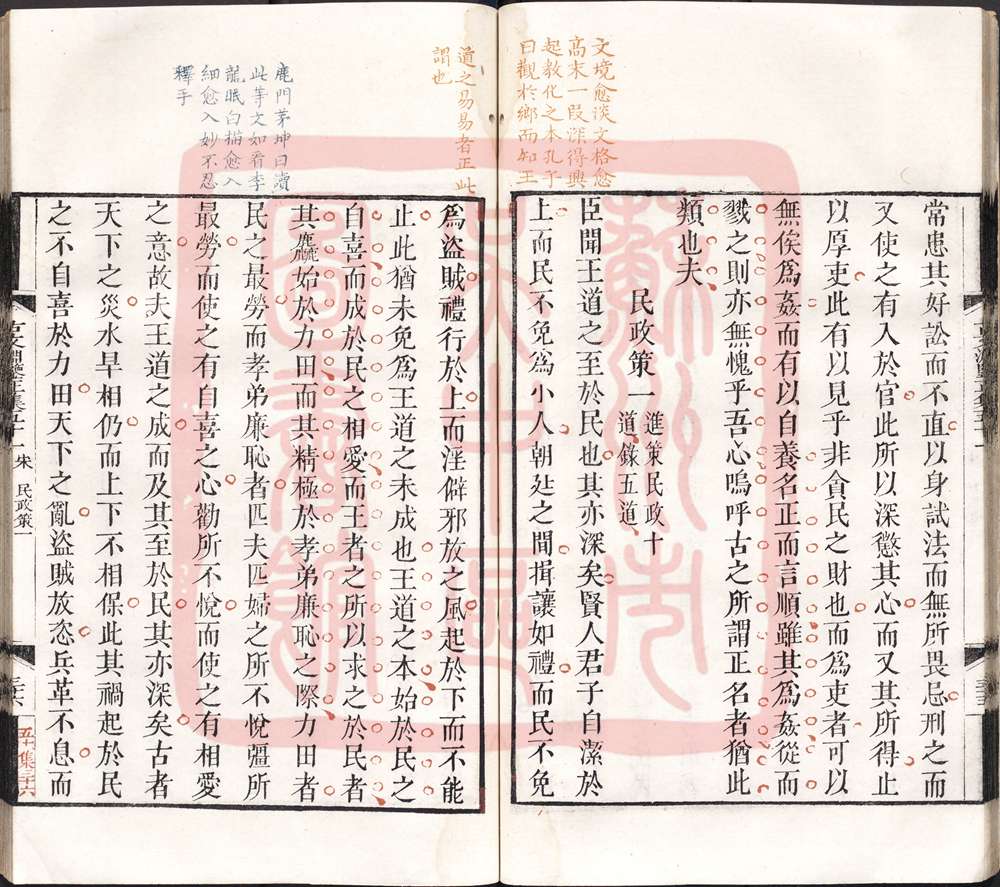 文境愈淡文格愈
高末一段深得興
起教化之本孔子
曰觀於鄉而知王
道之易易者正此
謂也
常患其好訟而不直以身試法而無所畏忌刑之而
又使之有入於官此所以深懲其心而又其所得止
以厚吏此有以見乎非貪民之財也而爲吏者可以
無俟爲姦而有以自養名正而言順雖其爲姦從而
戮之則亦無愧乎吾心嗚呼古之所謂正名者猶此
類也夫
民政策一 進策民政十道錄五道
臣聞王道之至於民也其亦深矣賢人君子自潔於
上而民不免爲小人朝廷之間揖讓如禮而民不免
鹿門茅坤曰讀
此等文如看李
龍眠白描愈入
細愈入妙不忍
釋手
爲盜賊禮行於上而淫僻邪放之風起於下而不能
止此猶未免爲王道之未成也王道之本始於民之
自喜而成於民之相愛而王者之所以求之於民者
其麤始於力田而其精極於孝弟廉恥之際力田者
民之最勞而孝弟廉恥者匹夫匹婦之所不悅彊所
最勞而使之有自喜之心勸所不悅而使之有相愛
之意故夫王道之成而及其至於民其亦深矣古者
天下之災水旱相仍而上下不相保此其禍起於民
之不自喜於力田天下之亂盜賊放恣兵革不息而
古文淵鑒正集五十一 宋 民政策一
三十六
五十一集三十六
蘇州市
吳中區
圖書館